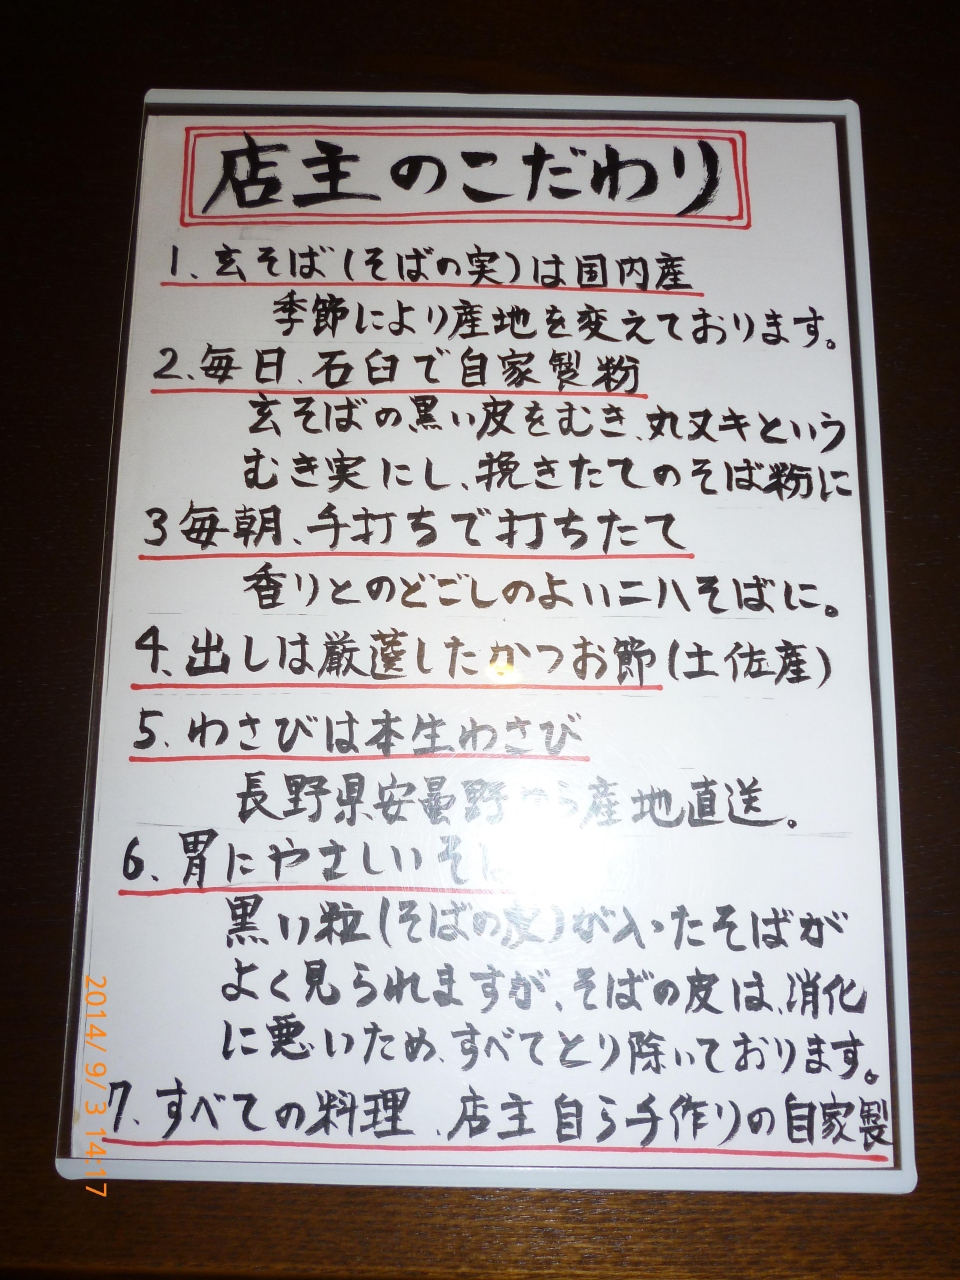 店主のこだわり
1、玄そば(そばの実)は国内産
季節により産地を変えております。
2、毎日、石臼で自家製粉
玄そばの黒い皮をむき、丸ヌキという
むき実にし、挽きたてのそば粉に
3毎朝、手打ちで打ちたて
香りとのどごしのよい二八そばに。
4、出しは厳選したかつお節(土佐産)
5、わさびは本生わさび
長野県安曇野から産地直送。
6、胃にやさしいそば
黒い粒(そばの皮)が入ったそばが
よく見られますが、そばの皮は、消化
に悪いため、すべてとり除いております。
7、すべての料理、店主自ら手作りの自家製
2014/ 9/ 3 14:17